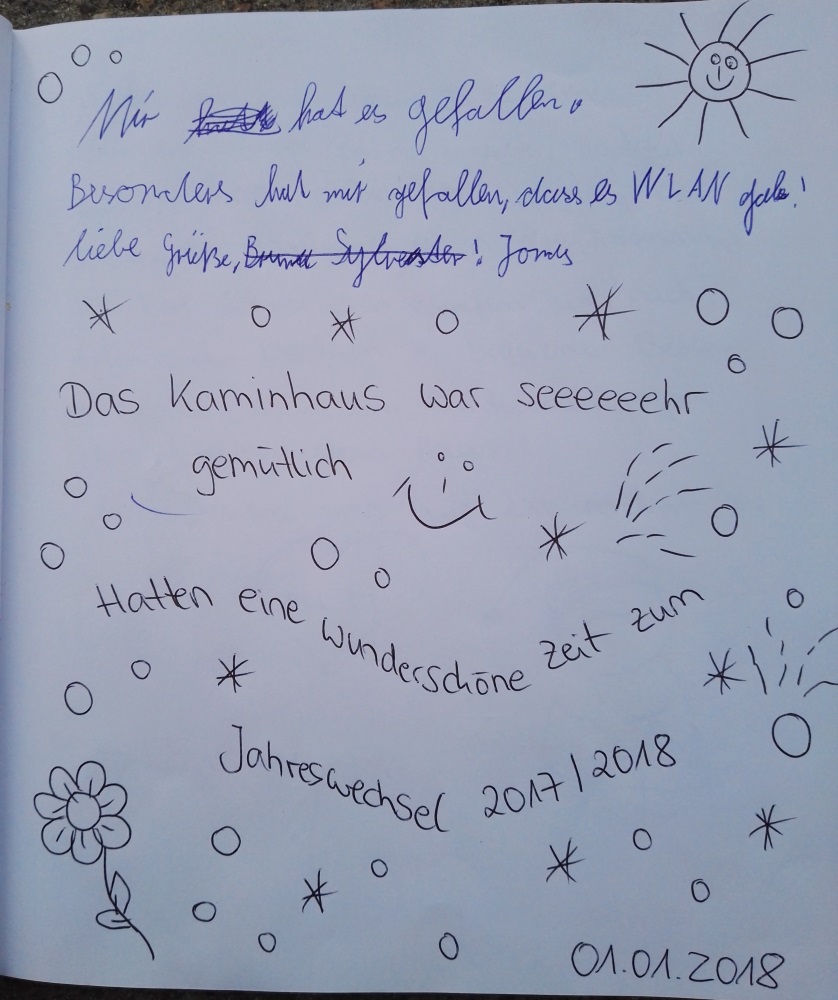 Mir hat es gefallen.
Besonders hat mir gefallen, dass es WLAN gab!
liebe Grüße, Sylvester! Jonas
Das Kaminhaus war seeeeeehr
gemütlich
Hatten eine wunderschöne Zeit zum
Jahreswechsel 2017/2018
01.01.2018